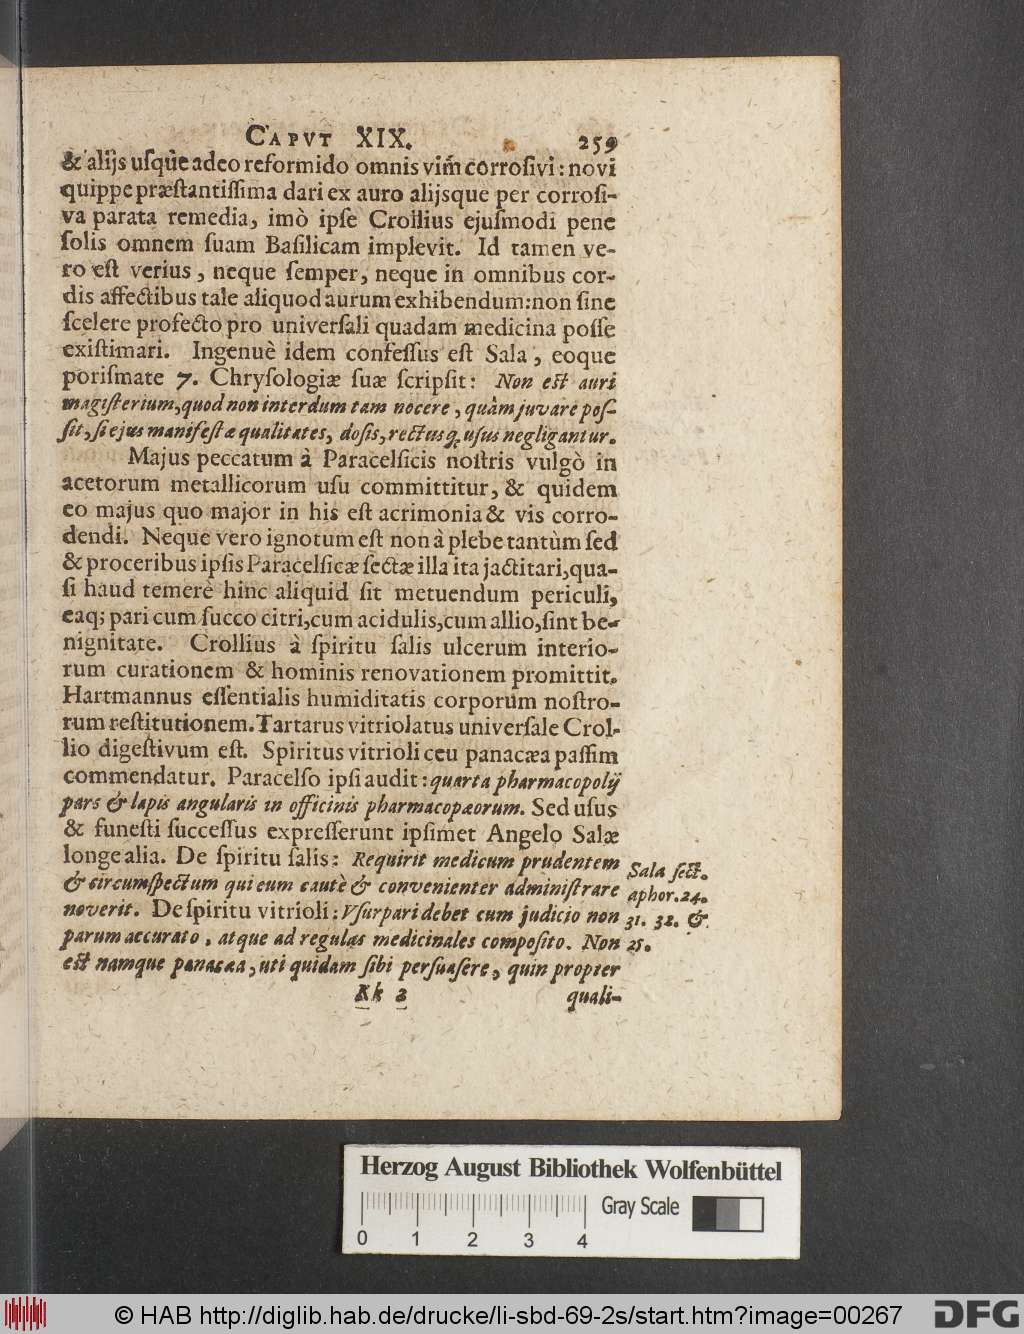 CAPVT XIX. 259
& alijs uſqùe adeo reformido omnis vim corroſivi: novi
quippe præſtantiſſima dari ex auro alijsque per corroſi-
va parata remedia, imò ipſe Crollius ejuſmodi pene
ſolis omnem ſuam Baſilicam implevit. Id tamen ve-
ro eſt verius, neque ſemper, neque in omnibus cor-
dis affectibus tale aliquod aurum exhibendum: non ſine
ſcelere profecto pro univerſali quadam medicina poſſe
exiſtimari. Ingenuè idem confeſſus eſt Sala, eoque
poriſmate 7. Chryſologiæ ſuæ ſcripſit: Non eſt auri
magiſterium, quod non interdum tam nocere, quàm juvare poſ-
ſit, ſi ejus manifeſtæ qualitates, doſis, rectusq; uſus negligantur.
Majus peccatum à Paracelſicis noſtris vulgò in
acetorum metallicorum uſu committitur, & quidem
eo majus quo major in his eſt acrimonia & vis corro-
dendi. Neque vero ignotum eſt non à plebe tantùm ſed
& proceribus ipſis Paracelſicæ ſectæ illa ita jactitari, qua-
ſi haud temerè hinc aliquid ſit metuendum periculi,
eaq; pari cum ſucco citri, cum acidulis, cum allio, ſint be-
nignitate. Crollius à ſpiritu ſalis ulcerum interio-
rum curationem & hominis renovationem promittit.
Hartmannus eſſentialis humiditatis corporum noſtro-
rum reſtitutionem. Tartarus vitriolatus univerſale Crol-
lio digeſtivum eſt. Spiritus vitrioli ceu panacæa paſſim
commendatur. Paracelſo ipſi audit: quarta pharmacopolij
pars & lapis angularis in officinis pharmacopæorum. Sed uſus
& funeſti ſucceſſus expreſſerunt ipſimet Angelo Salæ
longe alia. De ſpiritu ſalis: Requirit medicum prudentem
& circumſpectum qui eum cautè & convenienter adminiſtrare
noverit. De ſpiritu vitrioli: Vſurpari debet cum judicio non
parum accurato, atque ad regulas medicinales compoſito. Non
eſt namque panacæa, uti quidam ſibi perſuaſere, quin propter
Sala ſect.
aphor. 24.
31. 32. &
25.
Kk 2 quali-
Herzog August Bibliothek Wolfenbüttel
Gray Scale
0 1 2 3 4
© HAB http://diglib.hab.de/drucke/li-sbd-69-2s/start.htm?image=00267
DFG